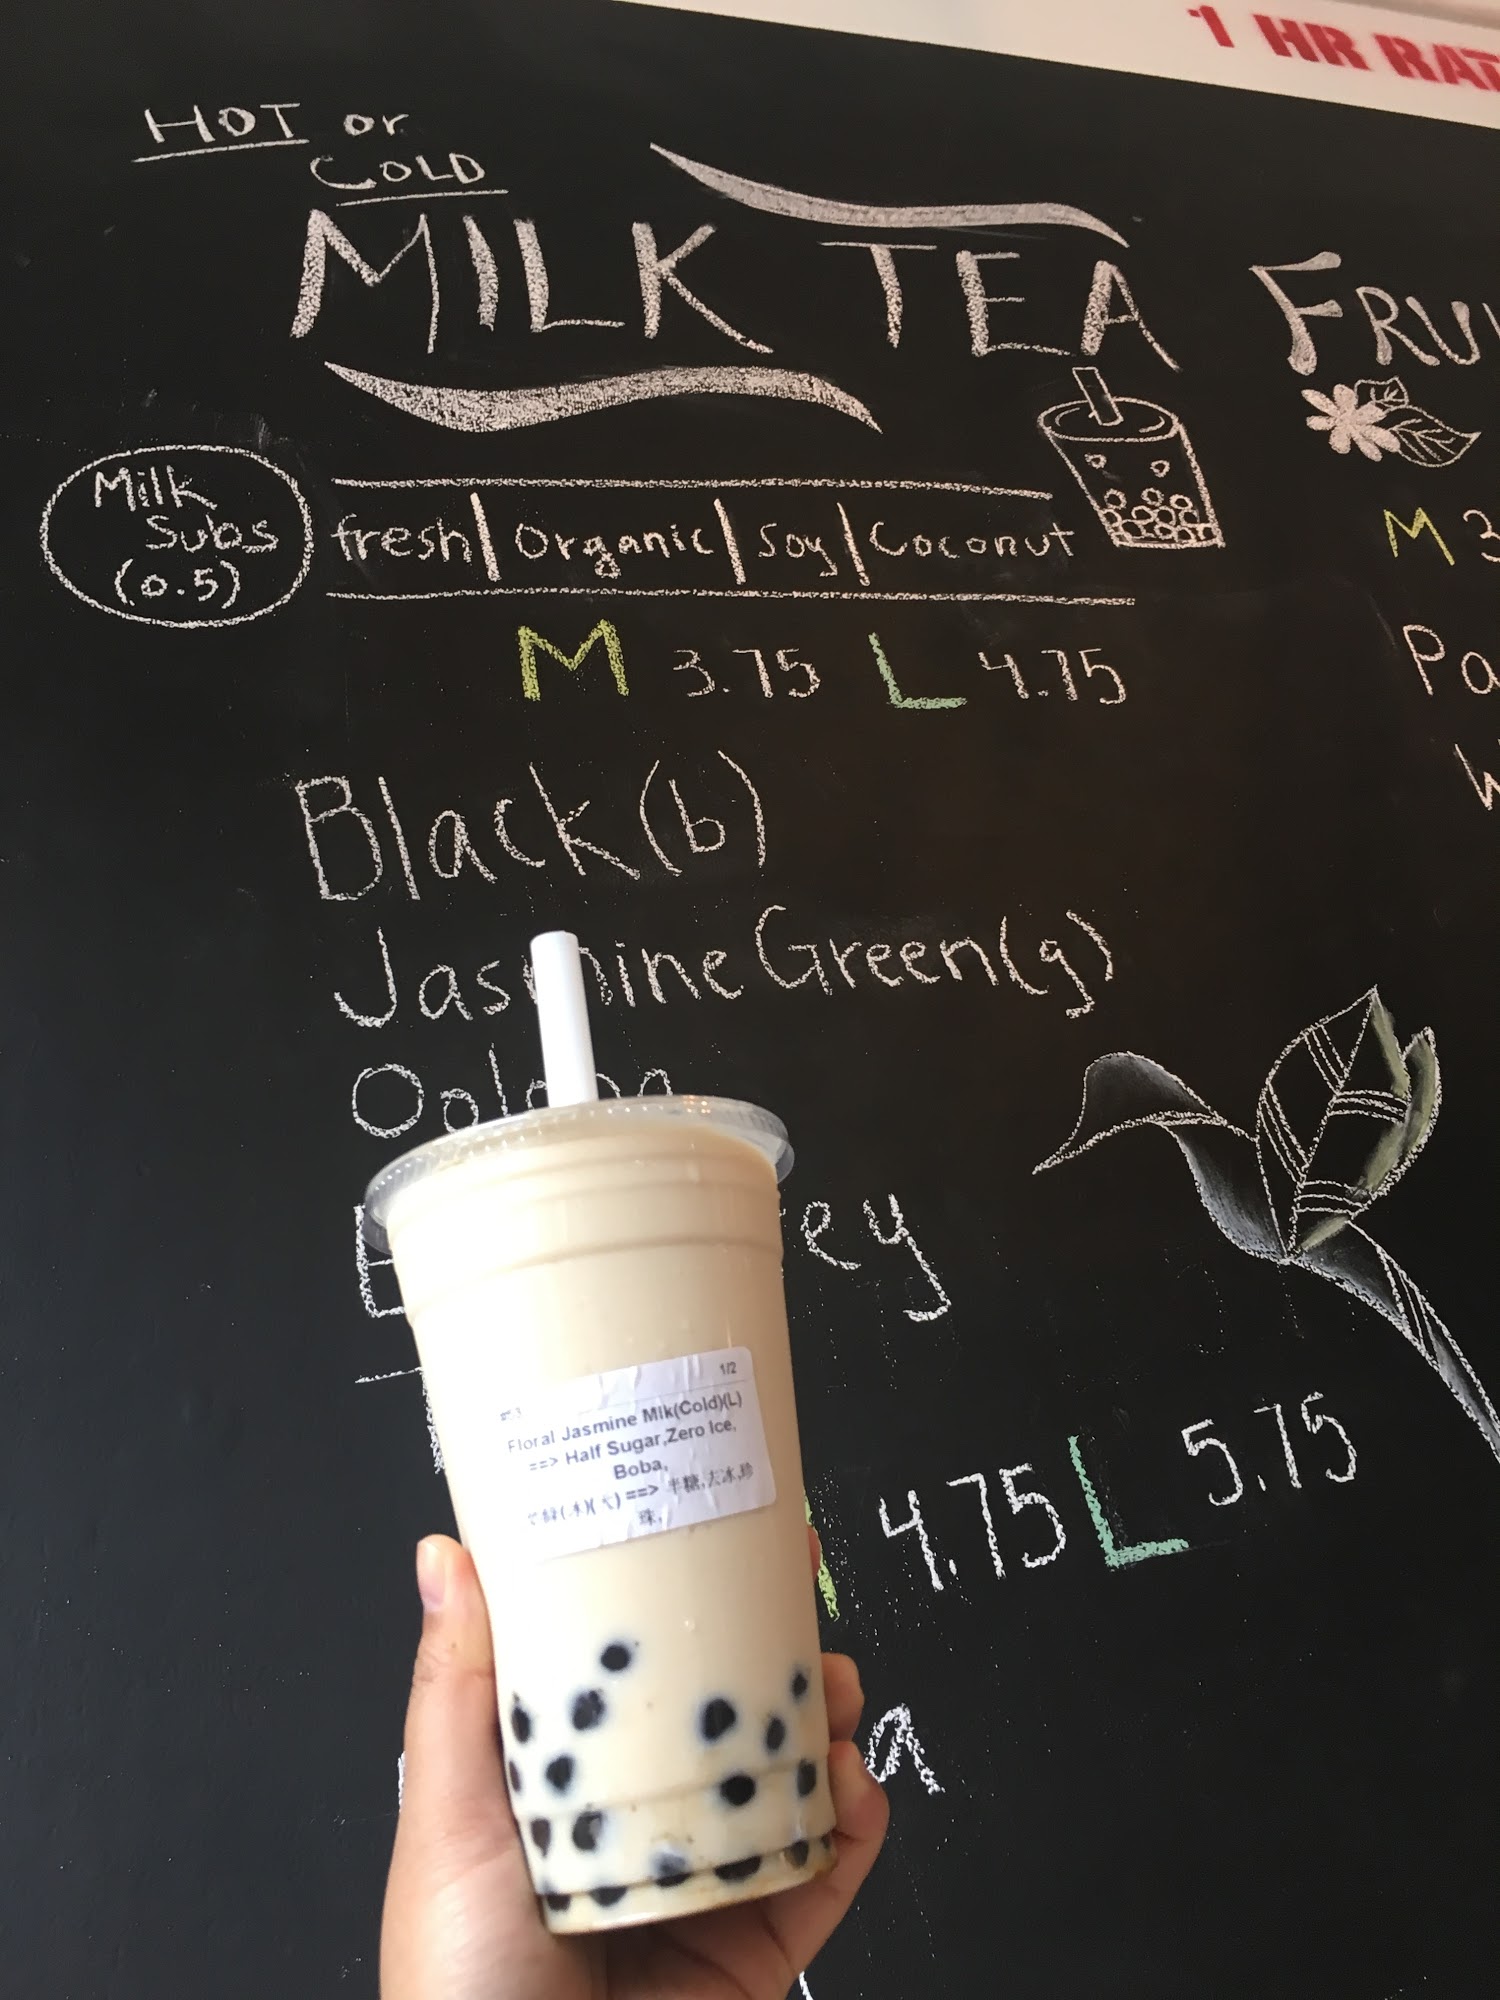 1 HR
HOT or
COLD
MILK TEA
Milk
Subs
(0.5)
fresh | Organic | Soy | Coconut
M 3.75 L 4.75
Black (b)
Jasmine Green (g)
ey
4.75 L 5.75
M
1/2
Floral Jasmine Mlk(Cold)(L)
==> Half Sugar,Zero Ice,
Boba,
==> 半糖,去冰,珍
珠,